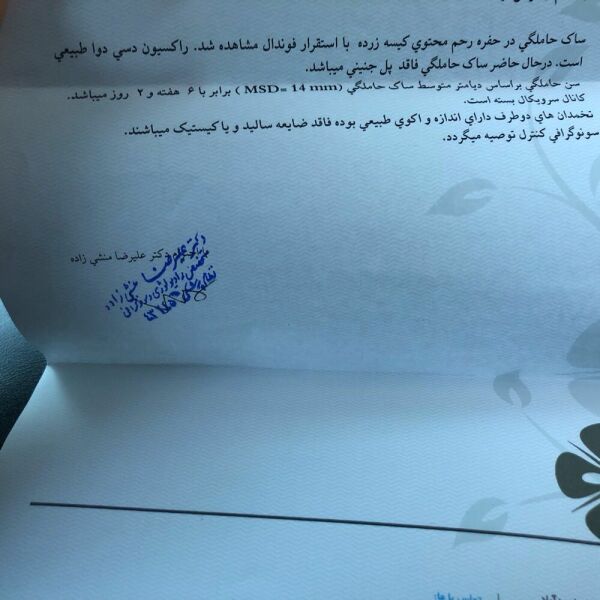 ساک حاملگي در حفره رحم محتوي کيسه زرده با استقرار فوندال مشاهده شد. راکسيون دسي دوا طبيعي
است. درحال حاضر ساک حاملگي فاقد پل جنيني ميباشد.
سن حاملگي براساس ديامتر متوسط ساک حاملگي (MSD= 14 mm ) برابر با ۶ هفته و ۲ روز ميباشد.
کانال سرويکال بسته است.
تخمدان هاي دوطرف داراي اندازه و اکوي طبيعي بوده فاقد ضايعه ساليد و يا کيستيک ميباشند.
سونوگرافي کنترل توصيه ميگردد.
دکتر عليرضا منشي زاده
دکتر علیرضا منشی زاده